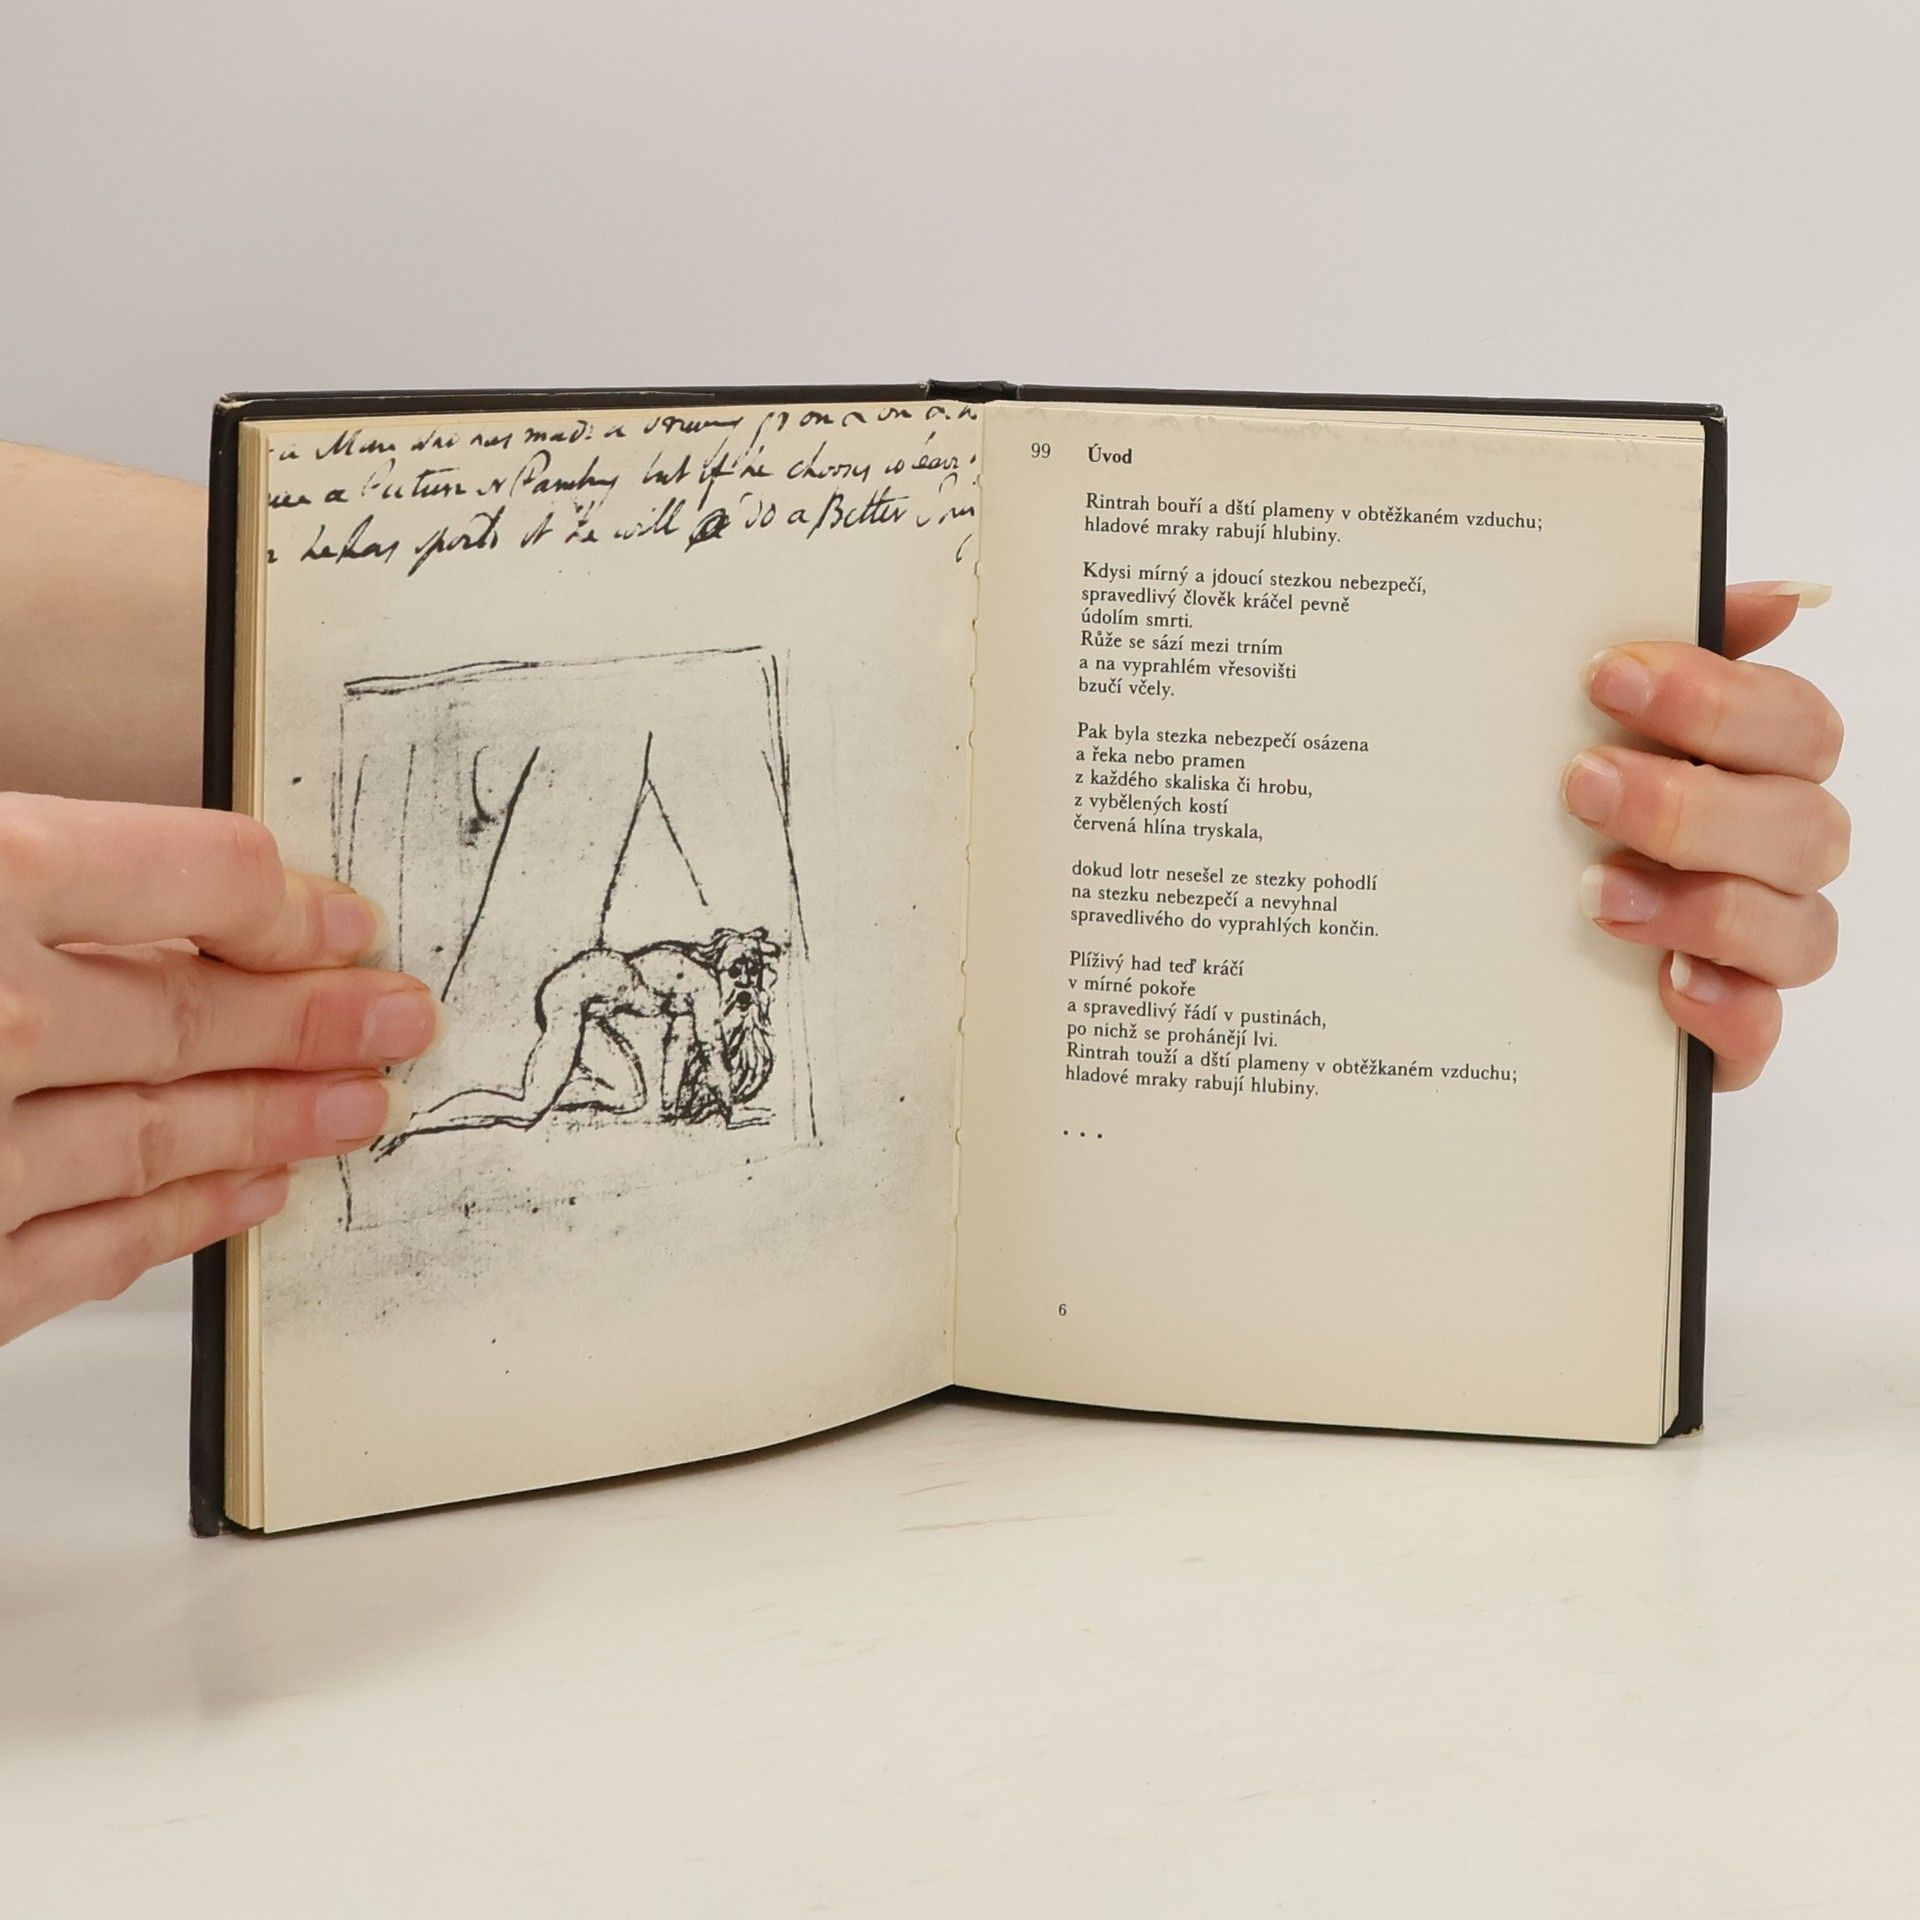 a Man who has made a Drawing go on & on
a Picture or Painting but if he chooses to leave
he has spoild it he will do a Better
99 Úvod
Rintrah bouří a dští plameny v obtěžkaném vzduchu;
hladové mraky rabují hlubiny.
Kdysi mírný a jdoucí stezkou nebezpečí,
spravedlivý člověk kráčel pevně
údolím smrti.
Růže se sází mezi trním
a na vyprahlém vřesovišti
bzučí včely.
Pak byla stezka nebezpečí osázena
a řeka nebo pramen
z každého skaliska či hrobu,
z vybělených kostí
červená hlína tryskala,
dokud lotr nesešel ze stezky pohodlí
na stezku nebezpečí a nevyhnal
spravedlivého do vyprahlých končin.
Plíživý had teď kráčí
v mírné pokoře
a spravedlivý řádí v pustinách,
po nichž se prohánějí lvi.
Rintrah touží a dští plameny v obtěžkaném vzduchu;
hladové mraky rabují hlubiny.
...
6